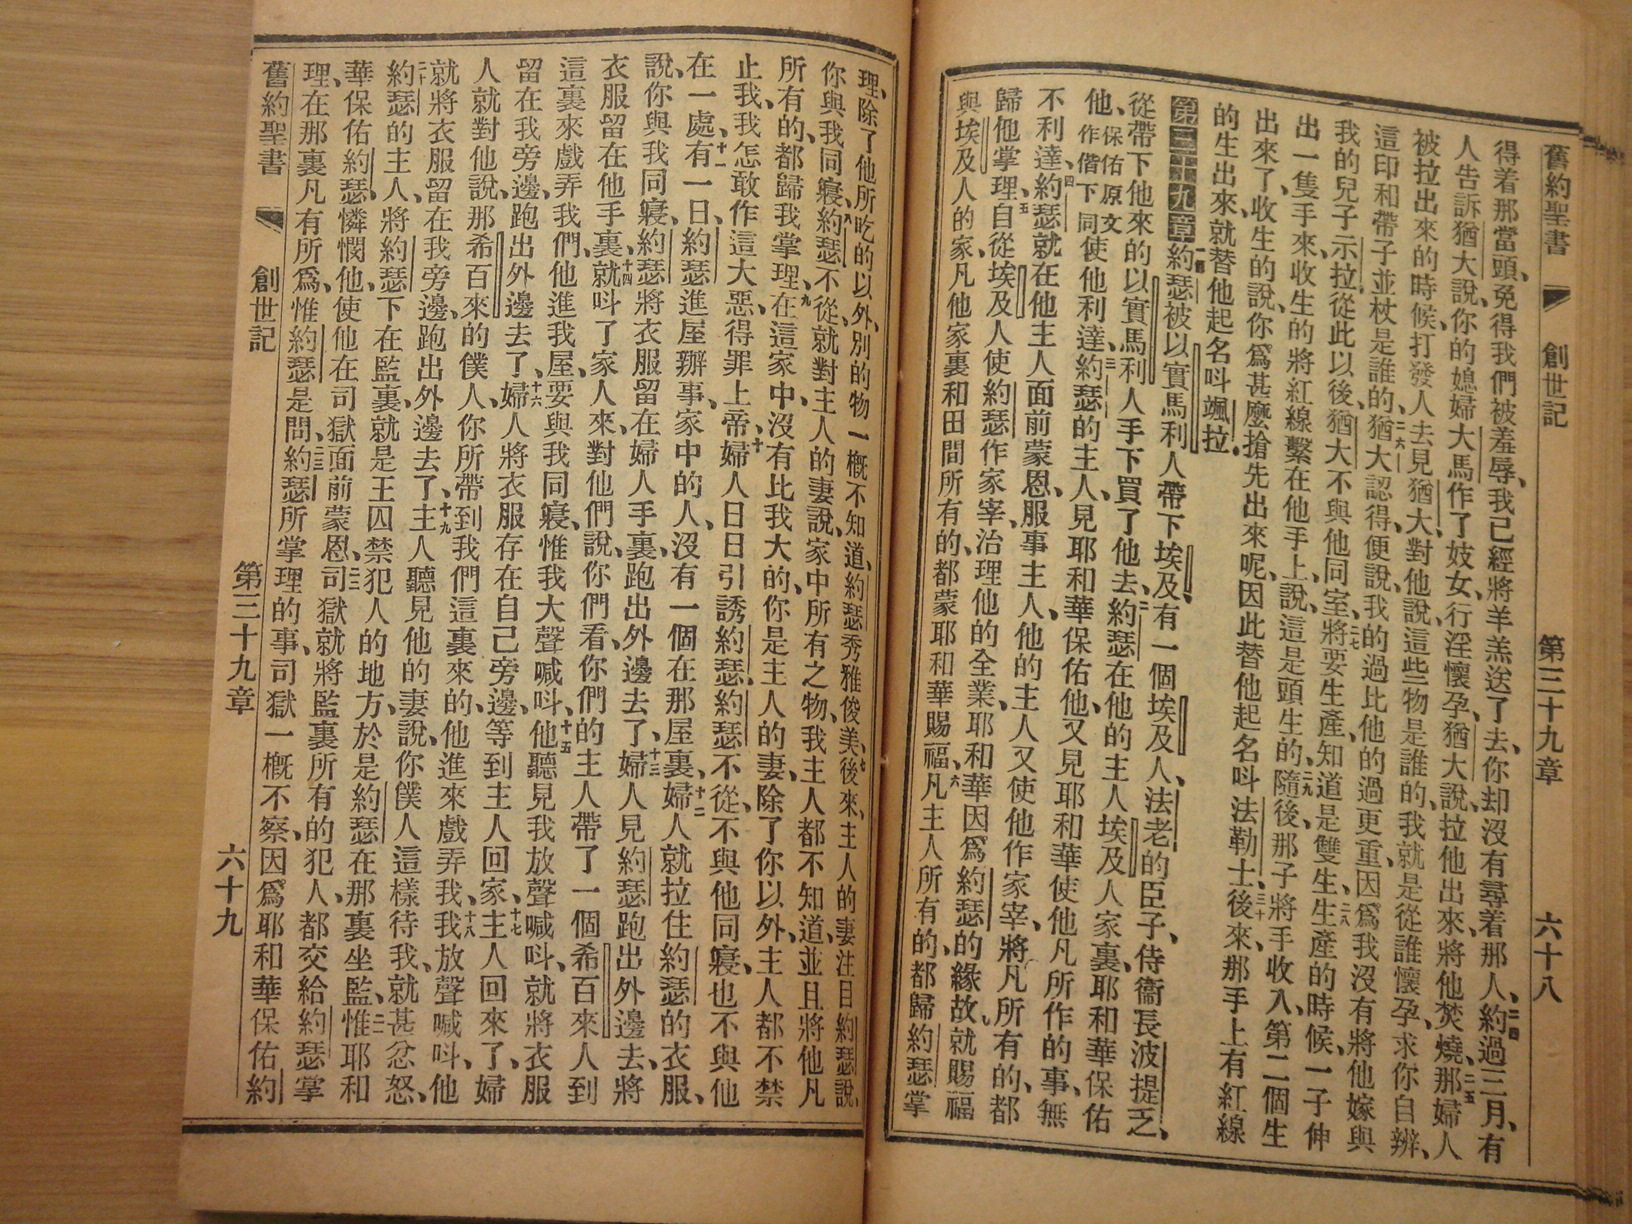 舊約聖書 創世記 第三十九章 六十八
得着那當頭、免得我們被羞辱、我已經將羊羔送了去、你却沒有尋着那人、二四約過三月、有
人告訴猶大說、你的媳婦大馬作了妓女、行淫懷孕、猶大說、拉他出來將他焚燒、二五那婦人
被拉出來的時候、打發人去見猶大、對他說、這些物是誰的、我就是從誰懷孕、求你自辨、
這印和帶子並杖是誰的、二六猶大認得、便說、我的過比他的過更重、因爲我沒有將他嫁與
我的兒子示拉、從此以後、猶大不與他同室、二七將要生產、知道是雙生、二八生產的時候、一子伸
出一隻手來、收生的將紅線繫在他手上、說、這是頭生的、二九隨後、那子將手收入、第二個生
出來了、收生的說、你爲甚麼搶先出來呢、因此替他起名呌法勒士、三十後來、那手上有紅線
的生出來、就替他起名呌颯拉、
第三十九章 一約瑟被以實馬利人帶下埃及、有一個埃及人、法老的臣子、侍衞長波提乏、
從帶下他來的以實馬利人手下買了他去、二約瑟在他的主人埃及人家裏、耶和華保佑
他、保佑原文作偕下同使他利達、三約瑟的主人、見耶和華保佑他、又見耶和華使他凡所作的事、無
不利達、四約瑟就在他主人面前蒙恩、服事主人、他的主人又使他作家宰、將凡所有的、都
歸他掌理、五自從埃及人使約瑟作家宰、治理他的全業、耶和華因爲約瑟的緣故、就賜福
與埃及人的家、凡他家裏和田間所有的、都蒙耶和華賜福、六凡主人所有的、都歸約瑟掌
理、除了他所吃的以外、別的物一槪不知道、約瑟秀雅俊美、七後來、主人的妻注目約瑟說、
你與我同寢、八約瑟不從、就對主人的妻說、家中所有之物、我主人都不知道、並且將他凡
所有的、都歸我掌理、九在這家中、沒有比我大的、你是主人的妻、除了你以外、主人都不禁
止我、我怎敢作這大惡、得罪上帝、十婦人日日引誘約瑟、約瑟不從、不與他同寢、也不與他
在一處、十一有一日、約瑟進屋辦事、家中的人、沒有一個在那屋裏、十二婦人就拉住約瑟的衣服、
說、你與我同寢、約瑟將衣服留在婦人手裏、跑出外邊去了、十三婦人見約瑟跑出外邊去、將
衣服留在他手裏、十四就呌了家人來、對他們說、你們看、你們的主人帶了一個希百來人到
這裏來戲弄我們、他進我屋、要與我同寢、惟我大聲喊呌、十五他聽見我放聲喊呌、就將衣服
留在我旁邊、跑出外邊去了、十六婦人將衣服存在自己旁邊、等到主人回家、十七主人回來了、婦
人就對他說、那希百來的僕人、你所帶到我們這裏來的、他進來戲弄我、十八我放聲喊呌、他
就將衣服留在我旁邊、跑出外邊去了、十九主人聽見他的妻說、你僕人這樣待我、就甚忿怒、
二十約瑟的主人、將約瑟下在監裏、就是王囚禁犯人的地方、於是約瑟在那裏坐監、二一惟耶和
華保佑約瑟、憐憫他、使他在司獄面前蒙恩、二二司獄就將監裏所有的犯人、都交給約瑟掌
理、在那裏凡有所爲、惟約瑟是問、二三約瑟所掌理的事、司獄一槪不察、因爲耶和華保佑約
舊約聖書 創世記 第三十九章 六十九